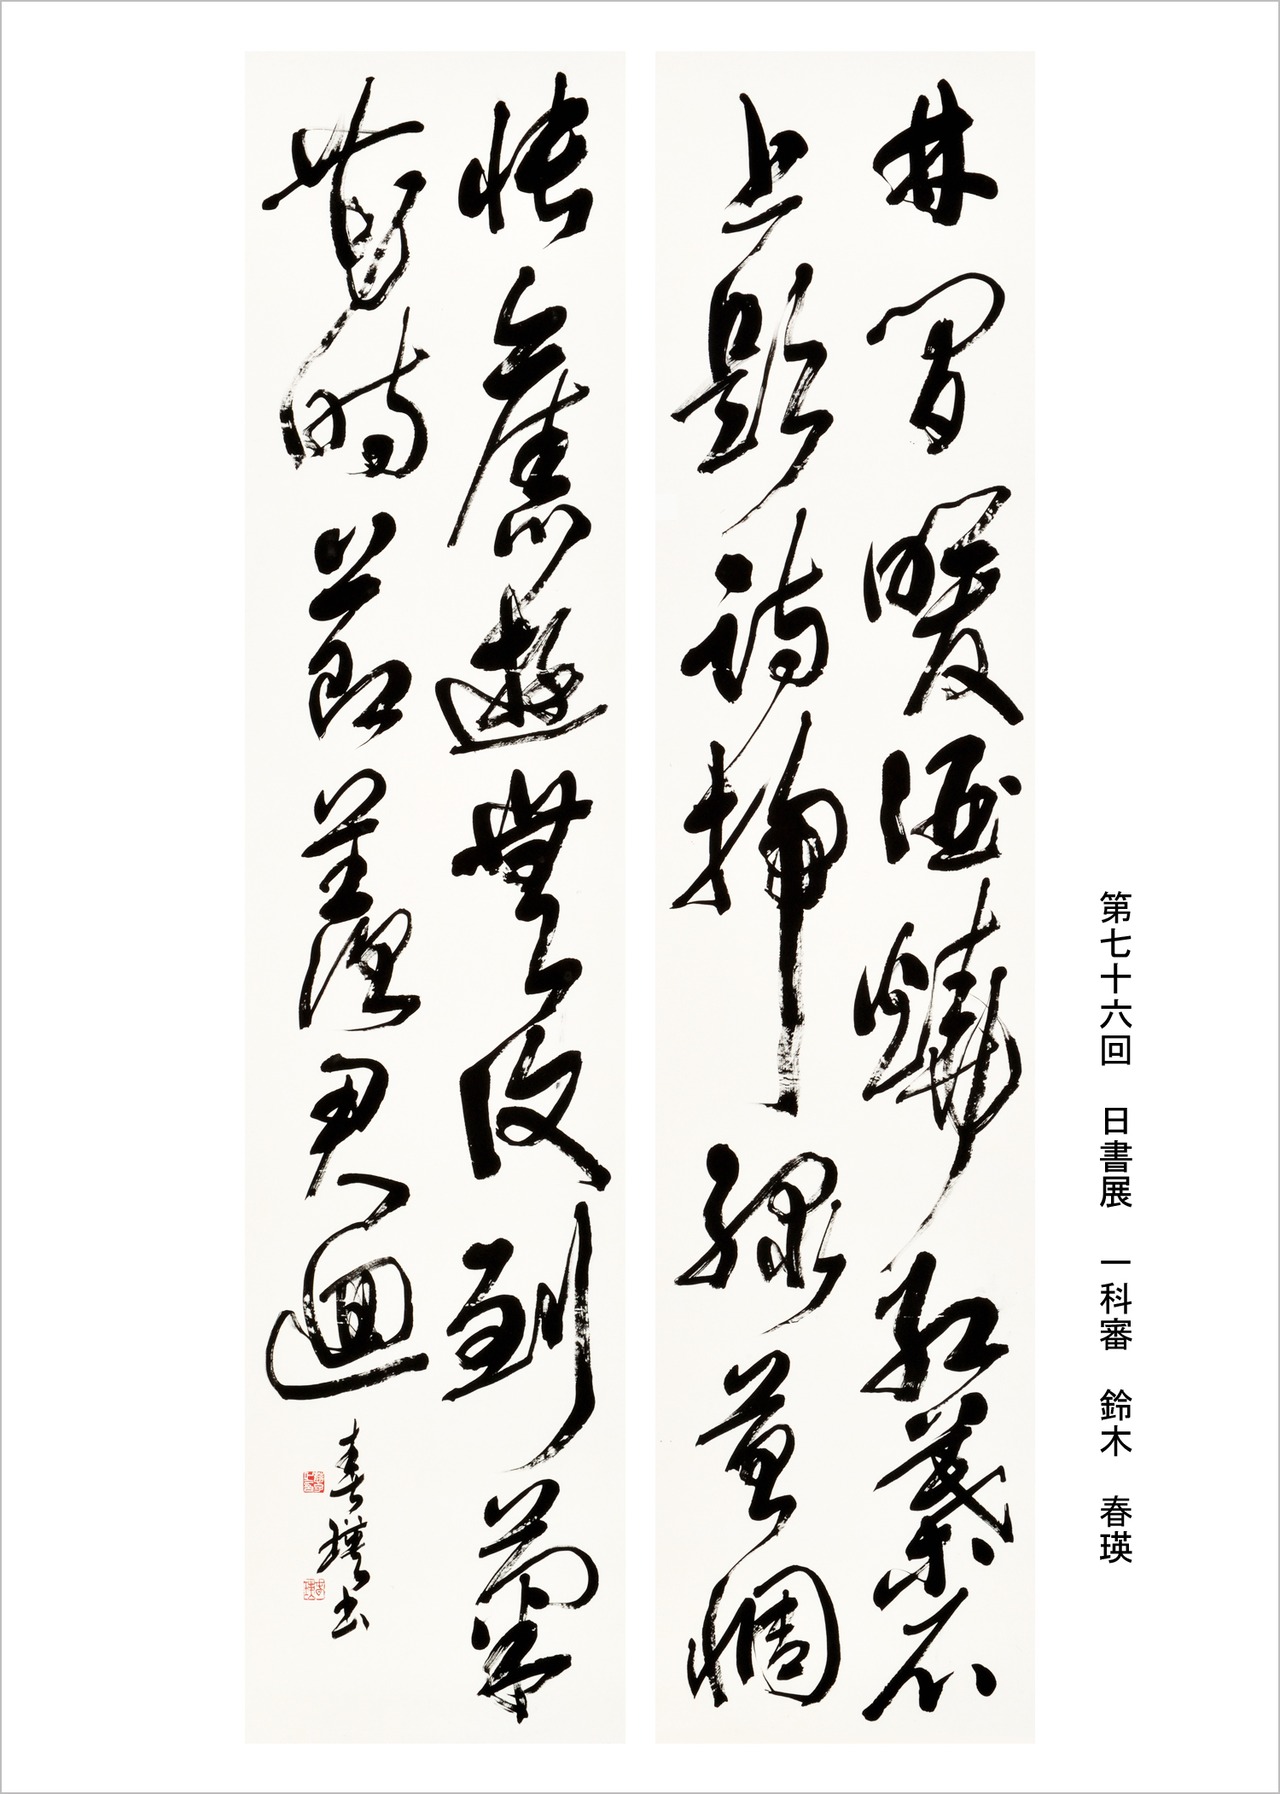 第七十六回 日書展 一科審 鈴木 春瑛
林間暖酒燒紅葉石
上題詩掃綠苔惆
悵舊遊無復到菊
花時節羨君迴
春瑛書